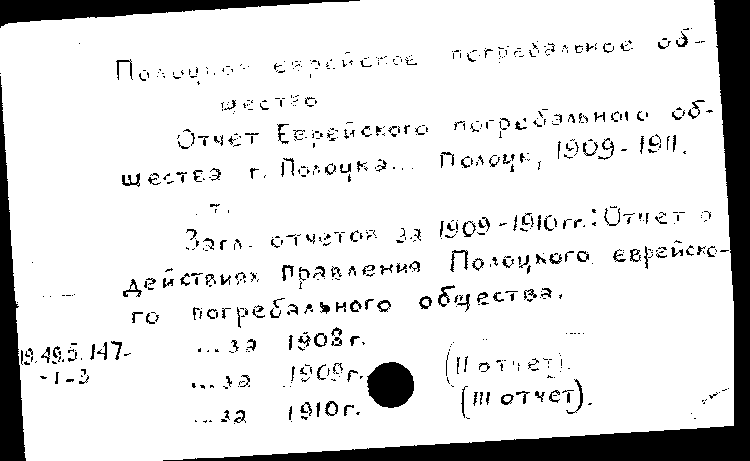 Полоцкое еврейское погребальное об-
щество
Отчет Еврейского погребального об-
щества г. Полоцка... Полоцк, 1909-1911.
т.
Загл. отчетов за 1909-1910 гг.: Отчет о
действиях правления Полоцкого еврейско-
го погребального общества.
19.49.5.147- ...за 1908 г.
-1-3 ...за 1909 г. (II отчет).
...за 1910 г. (III отчет).